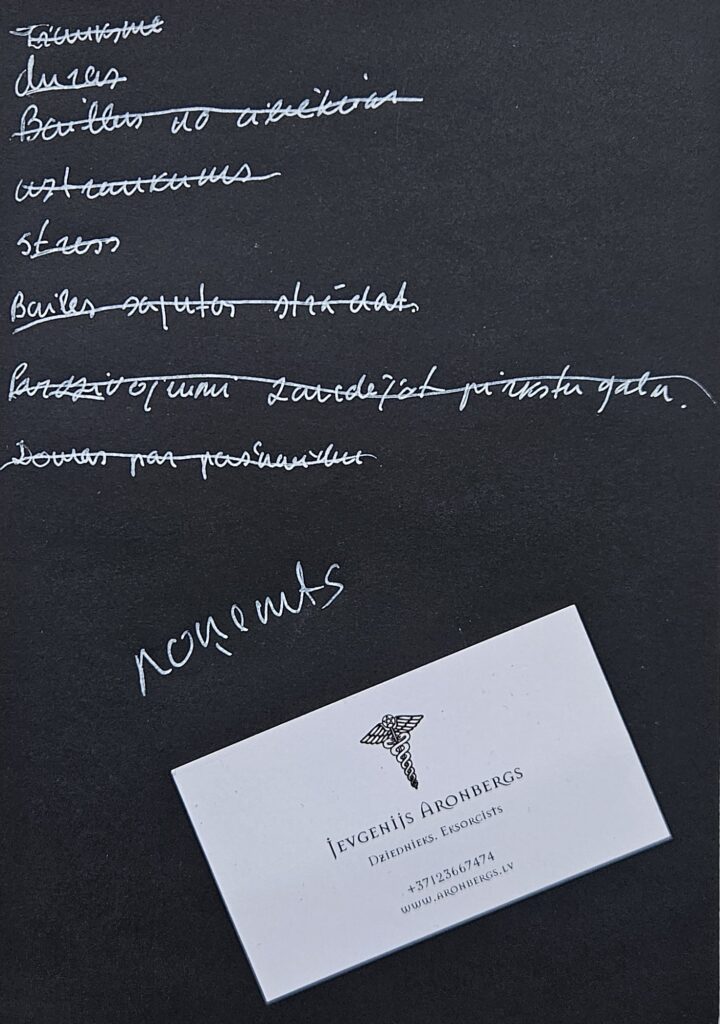 Trauksme
duras
Bailes no cilvēkiem
uztraukums
stress
Bailes sajutas strādat.
Pardzivojumi zaudējot pirkstu galu.
Domas par pašnavibu
noņemts
Jevgenijs Aronbergs
Dziednieks. Eksorcists
+37123667474
www.aronbergs.lv